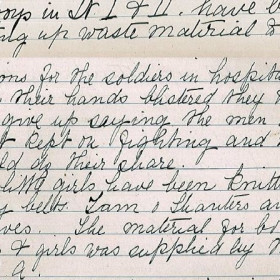 boys in St I & II. have b
ing up waste material &
ions for the soldiers in hospita
their hands blistered they
give up saying the men
t kept on fighting and
ld do their share.
little girls have been knitt
y belts. Tam o Shanters an
ves. The material for bo
s & girls was supplied by